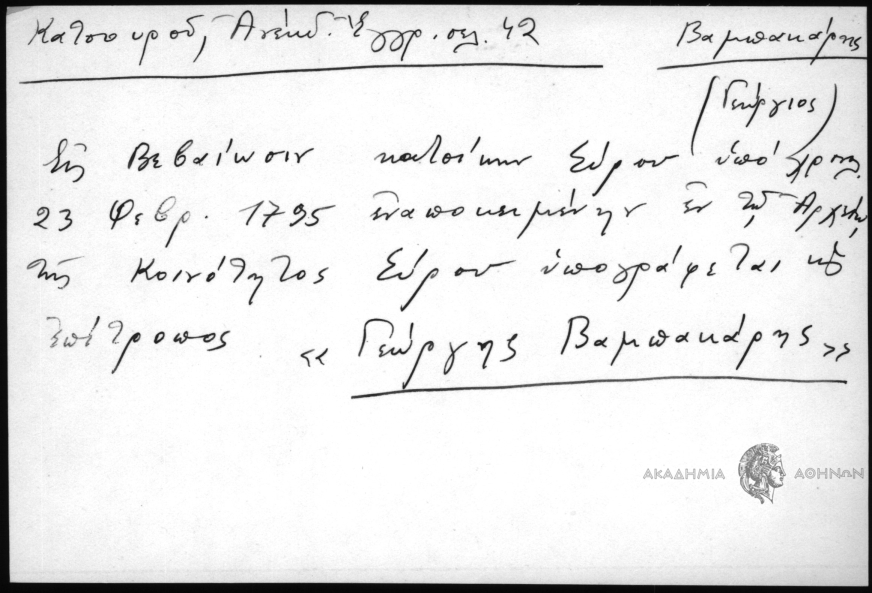 Κατσουροῦ, Ἀνέκδ. Ἔγγρ. σελ. 42
Βαμβακάρης
(Γεώργιος)
Εἰς Βεβαίωσιν κατοίκων Σύρου ὑπό χρον.
23 Φεβρ. 1795 ἐναποκειμένην ἐν τῷ Ἀρχείῳ
τῆς Κοινότητος Σύρου ὑπογράφεται κ
Ἐπίτροπος « Γεώργης Βαμβακάρης »
ΑΚΑΔΗΜΙΑ ΑΘΗΝΩΝ